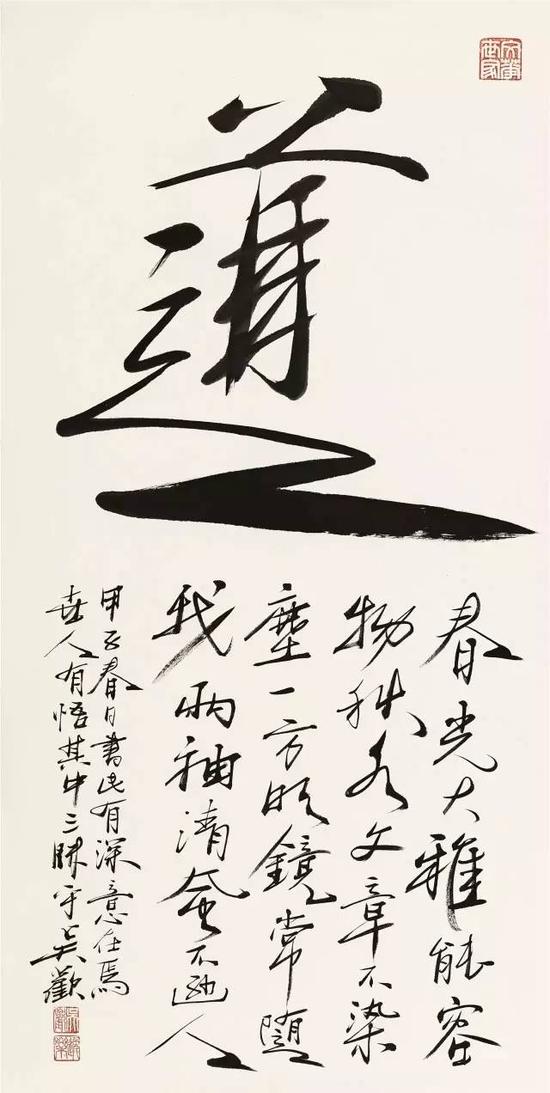 文華世家
春光大雅能容
物秋水文章不染
塵一方明鏡常隨
我兩袖清風不遜人
甲春日書此有深意在焉
世人有悟其中三昧乎吳歡